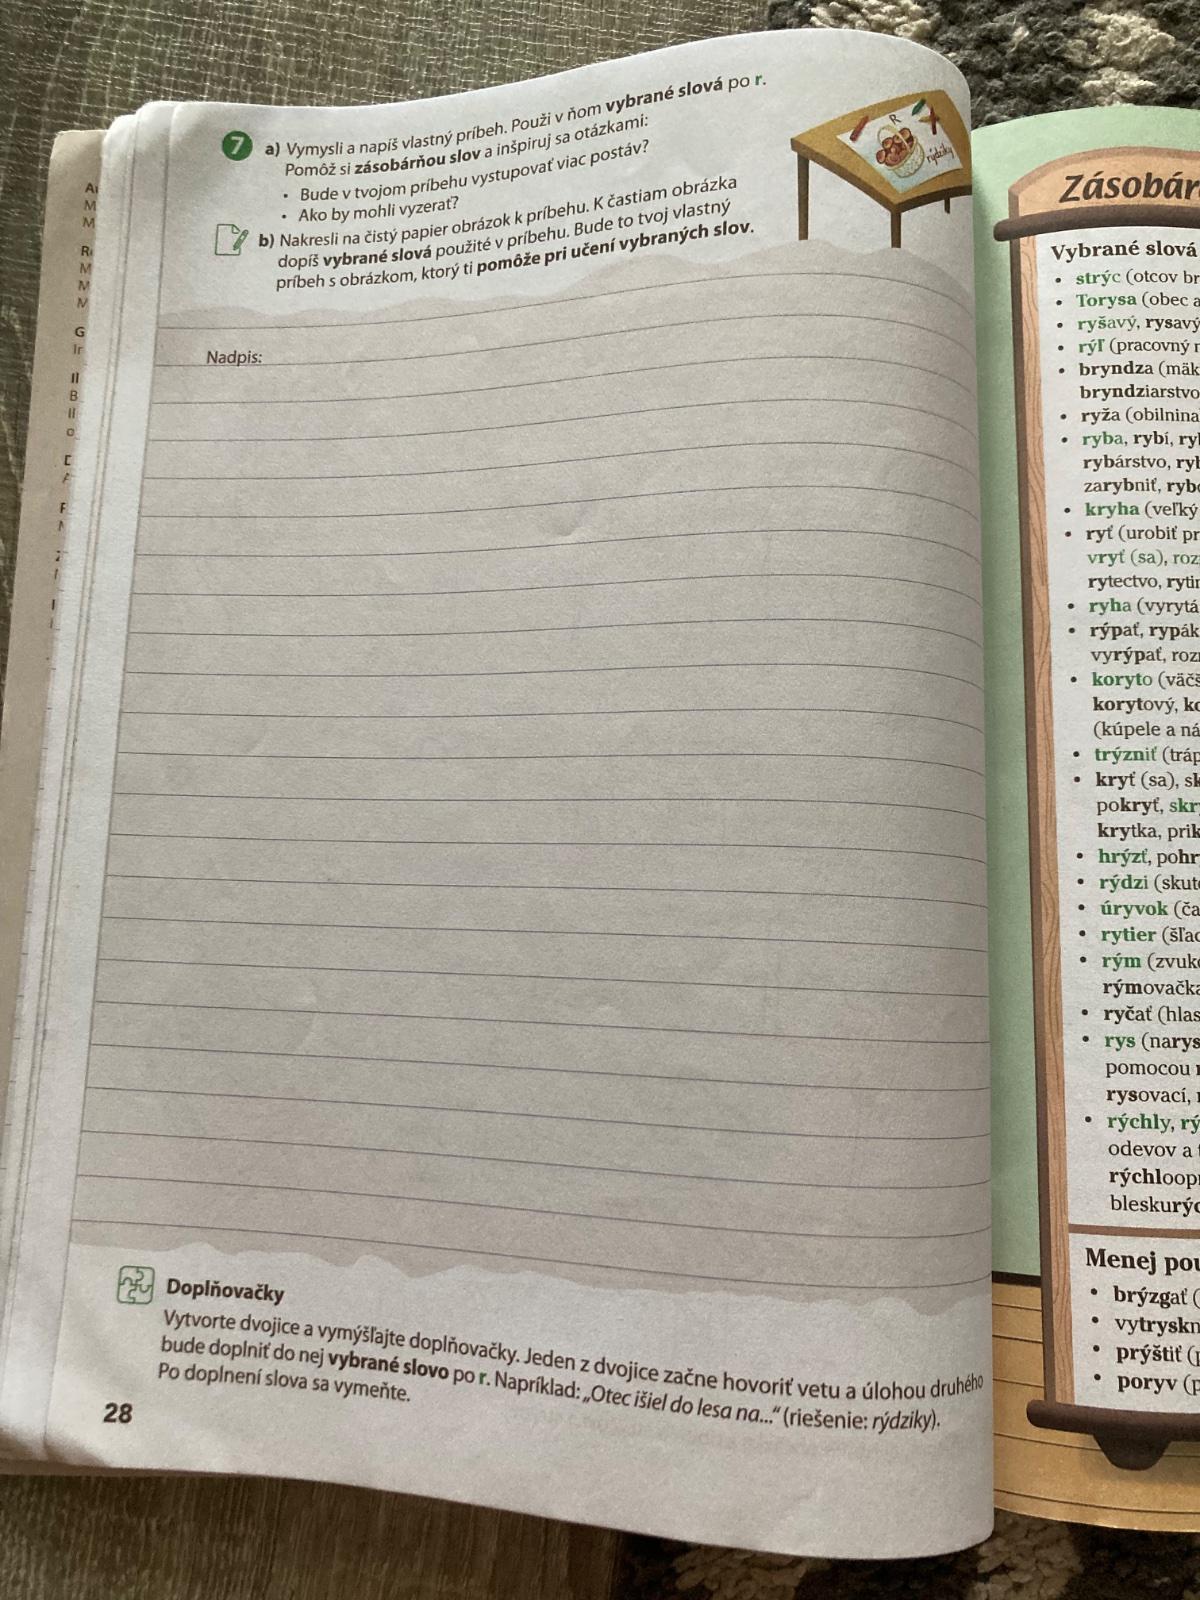 7 a) Vymysli a napíš vlastný príbeh. Použi v ňom vybrané slová po r.
Pomôž si zásobárňou slov a inšpiruj sa otázkami:
• Bude v tvojom príbehu vystupovať viac postáv?
• Ako by mohli vyzerať?
b) Nakresli na čistý papier obrázok k príbehu. K častiam obrázka
dopíš vybrané slová použité v príbehu. Bude to tvoj vlastný
príbeh s obrázkom, ktorý ti pomôže pri učení vybraných slov.
R
rýdziky
Nadpis:
Doplňovačky
Vytvorte dvojice a vymýšľajte doplňovačky. Jeden z dvojice začne hovoriť vetu a úlohou druhého
bude doplniť do nej vybrané slovo po r. Napríklad: „Otec išiel do lesa na...“ (riešenie: rýdziky).
Po doplnení slova sa vymeňte.
28
Zásobár
Vybrané slová
• strýc (otcov br
• Torysa (obec a
• ryšavý, rysavý
• rýľ (pracovný n
• bryndza (mäk
bryndziarstvo
• ryža (obilnina
• ryba, rybí, ryb
rybárstvo, ryb
zarybniť, rybo
• kryha (veľký
• ryť (urobiť pr
vryť (sa), roz
rytectvo, rytin
• ryha (vyrytá
• rýpať, rypák
vyrýpať, roz
• koryto (väčš
korytový, ko
(kúpele a ná
• trýzniť (tráp
• kryť (sa), sk
pokryť, skr
krytka, prik
• hrýzť, pohr
• rýdzi (skuto
• úryvok (ča
• rytier (šľac
• rým (zvuko
rýmovačka
• ryčať (hlas
• rys (narys
pomocou
rysovací,
• rýchly, rý
odevov a
rýchloopr
bleskurýc
Menej pou
• brýzgať (
• vytryskn
• prýštiť (p
• poryv (p